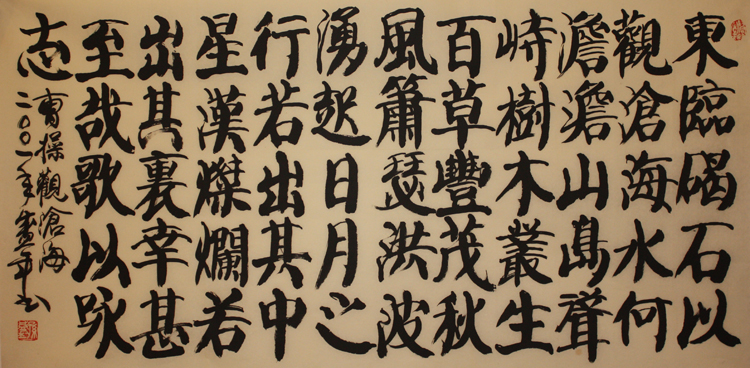 東臨碣石以
觀滄海水何
澹澹山島聲
峙樹木叢生
百草豐茂秋
風簫瑟洪波
湧起日月之
行若出其中
星漢燦爛若
出其裏幸甚
至哉歌以咏
志
曹操觀滄海
二〇〇一年書